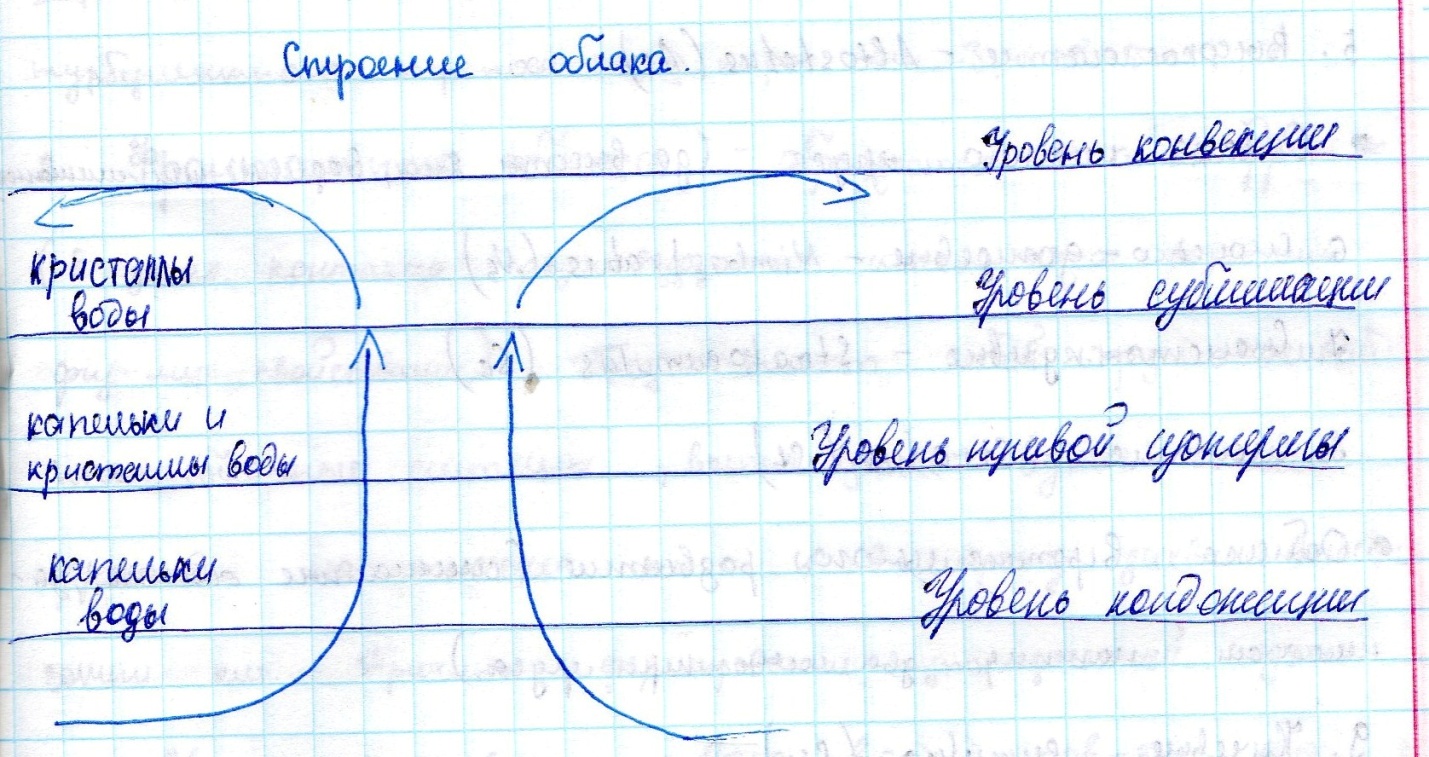 Строение облака.
Уровень конвекции
кристаллы
воды
Уровень сублимации
капельки и
кристаллы воды
Уровень нулевой изотермы
капельки
воды
Уровень конденсации